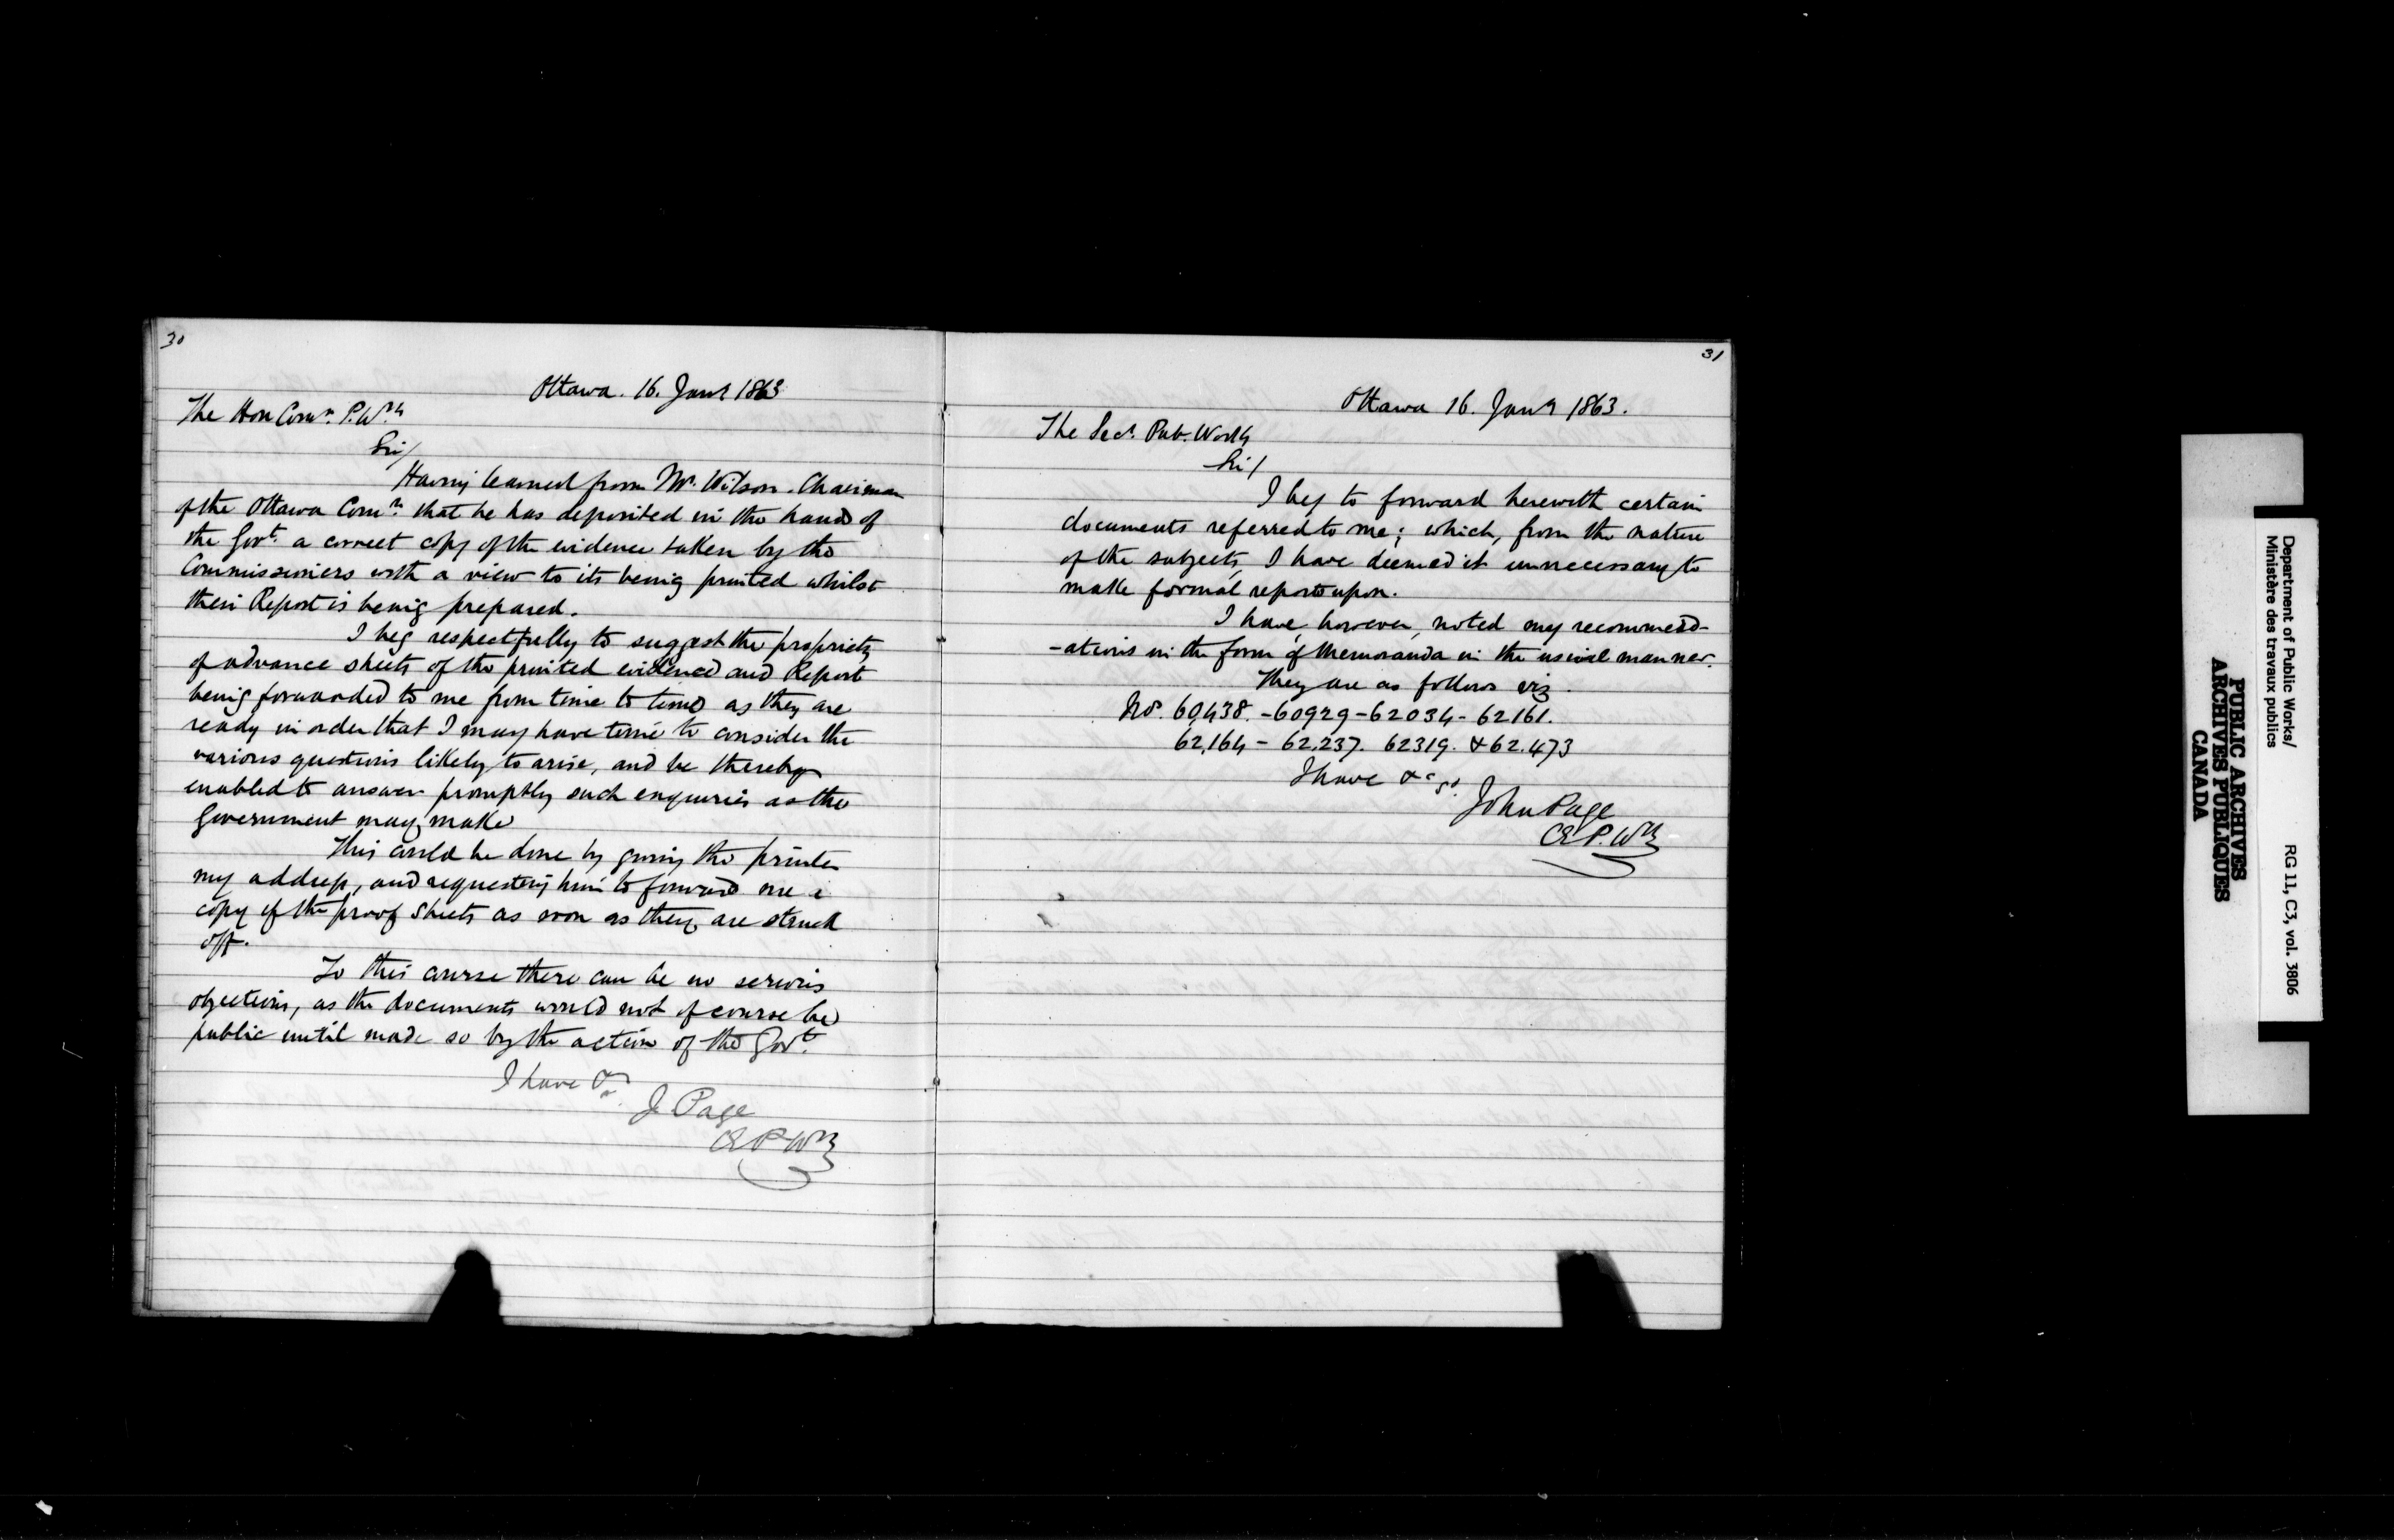 30
Ottawa. 16. Jany 1863
The Hon Comr. P. Wks
Sir/
Having learned from Mr. Wilson. Chairman
of the Ottawa Comrs. that he has deposited in the hands of
the Govt. a correct copy of the evidence taken by the
Commissioners with a view to its being printed whilst
their Report is being prepared.
I beg respectfully to suggest the propriety
of advance sheets of the printed evidence and Report
being forwarded to me from time to time as they are
ready in order that I may have time to consider the
various questions likely to arise, and be thereby
enabled to answer promptly such enquiries as the
Government may make
This could be done by giving the printer
my address, and requesting him to forward me a
copy of the proof sheets as soon as they are struck
off.
To this course there can be no serious
objections, as the documents would not of course be
public until made so by the action of the Govt.
I have &c
J Page
CE P. Wks
31
Ottawa 16. Jany 1863.
The Secy. Pub. Works
Sir/
I beg to forward herewith certain
documents referred to me; which, from the nature
of the subjects, I have deemed it unnecessary to
make formal reports upon.
I have, however, noted my recommend-
-ations in the form of Memoranda in the usual manner.
They are as follows viz.
Nos. 60,438. - 60929 - 62034 - 62161.
62,164 - 62,237. 62319. & 62.473
I have &c
John Page
CE P. Wks
Department of Public Works/
Ministère des travaux publics
RG 11, C3, vol. 3806
PUBLIC ARCHIVES
ARCHIVES PUBLIQUES
CANADA